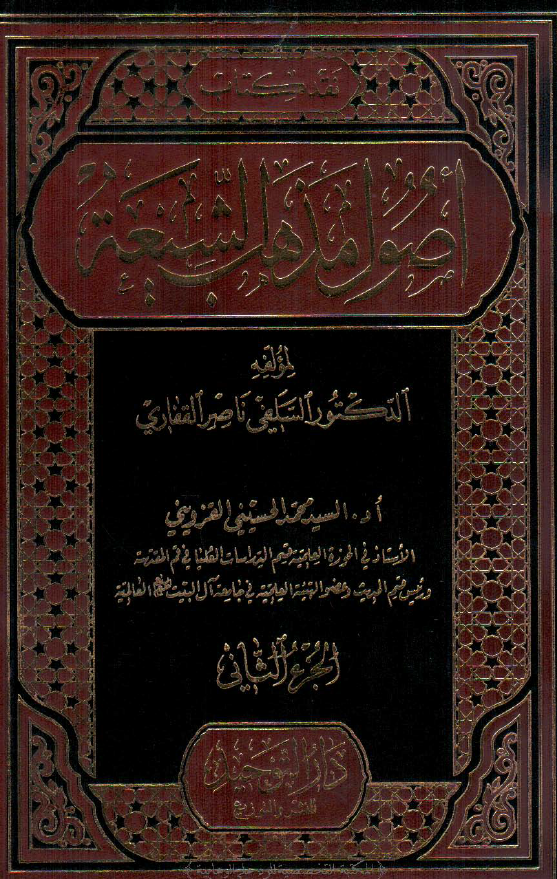 نقد كتاب
أصول مذهب الشيعة
لمؤلفه
الدكتور السلفي ناصر القفاري
أ.د. السيد محمد الحسيني القزويني
الأستاذ في الحوزة العلمية وقسم الدراسات العليا في قم المقدسة
ورئيس قسم الحديث وعضو الهيئة العلمية في جامعة آل البيت العالمية
الجزء الثاني
دار التوحيد
للنشر والتوزيع